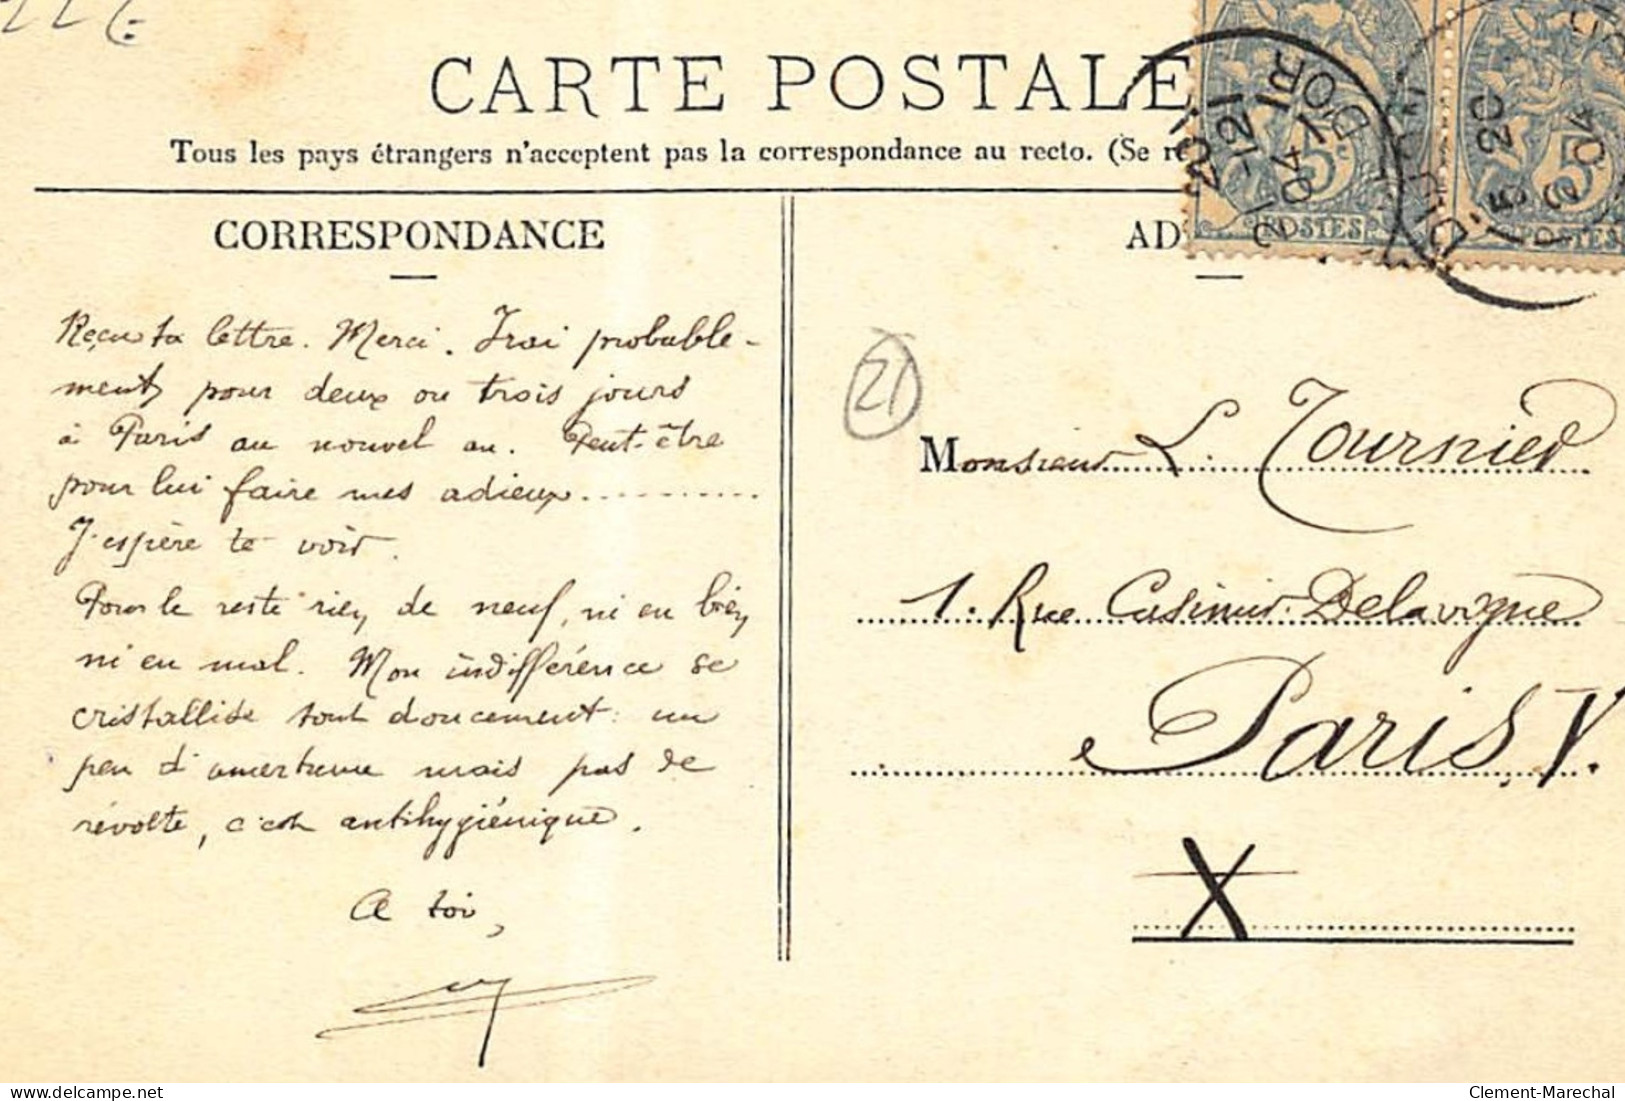 CARTE POSTALE
Tous les pays étrangers n'acceptent pas la correspondance au recto. (Se re
CORRESPONDANCE
Reçu ta lettre. Merci. Irai probable-
ment pour deux ou trois jours
à Paris au nouvel an. Peut-être
pour lui faire mes adieux..........
J'espère te voir.
Pour le reste rien de neuf, ni en bien
ni en mal. Mon indifférence se
cristallise tout doucement: un
peu d'amertume mais pas de
révolte, c'est antihygiénique.
A toi,
AD
5c
POSTES
21-12
04
5
POSTES
15 20
04
21
Monsieur L. Tournier
1. Rue Casimir-Delavigne
Paris V.
X
delcampe.net
Clement-Marechal